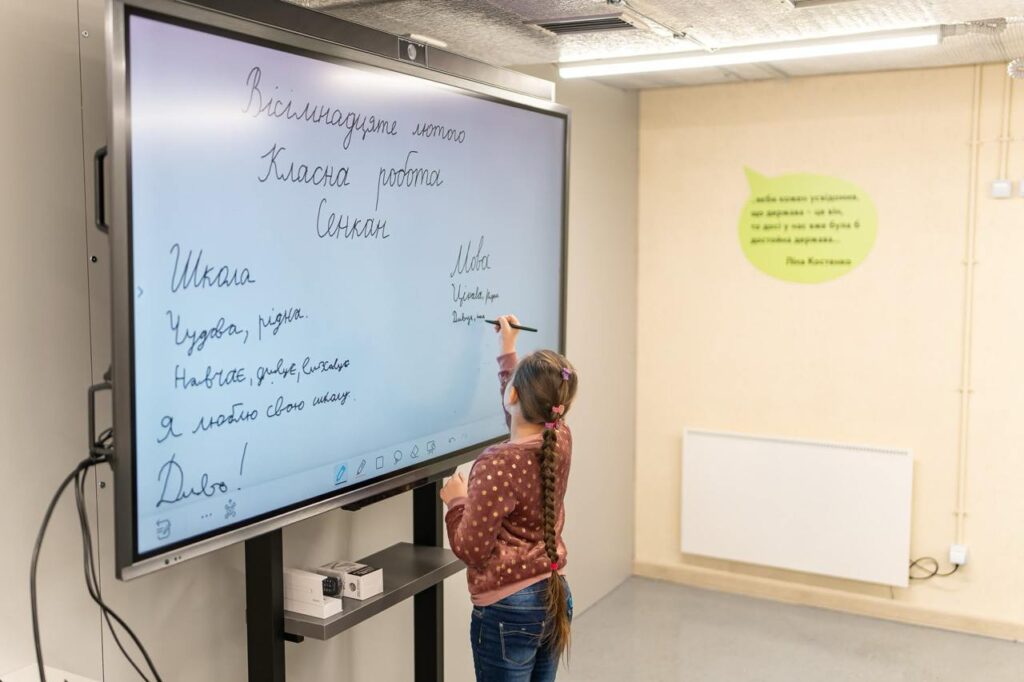 Вісімнадцяте лютого
Класна робота
Сенкан
Школа
Чудова, рідна.
Навчає, дивує, виховує
Я люблю свою школу.
Диво!
Мова
Цікава, рідна
...аби кожен усвідомив,
що держава – це він,
то досі у нас вже була б
достойна держава...
Ліна Костенко